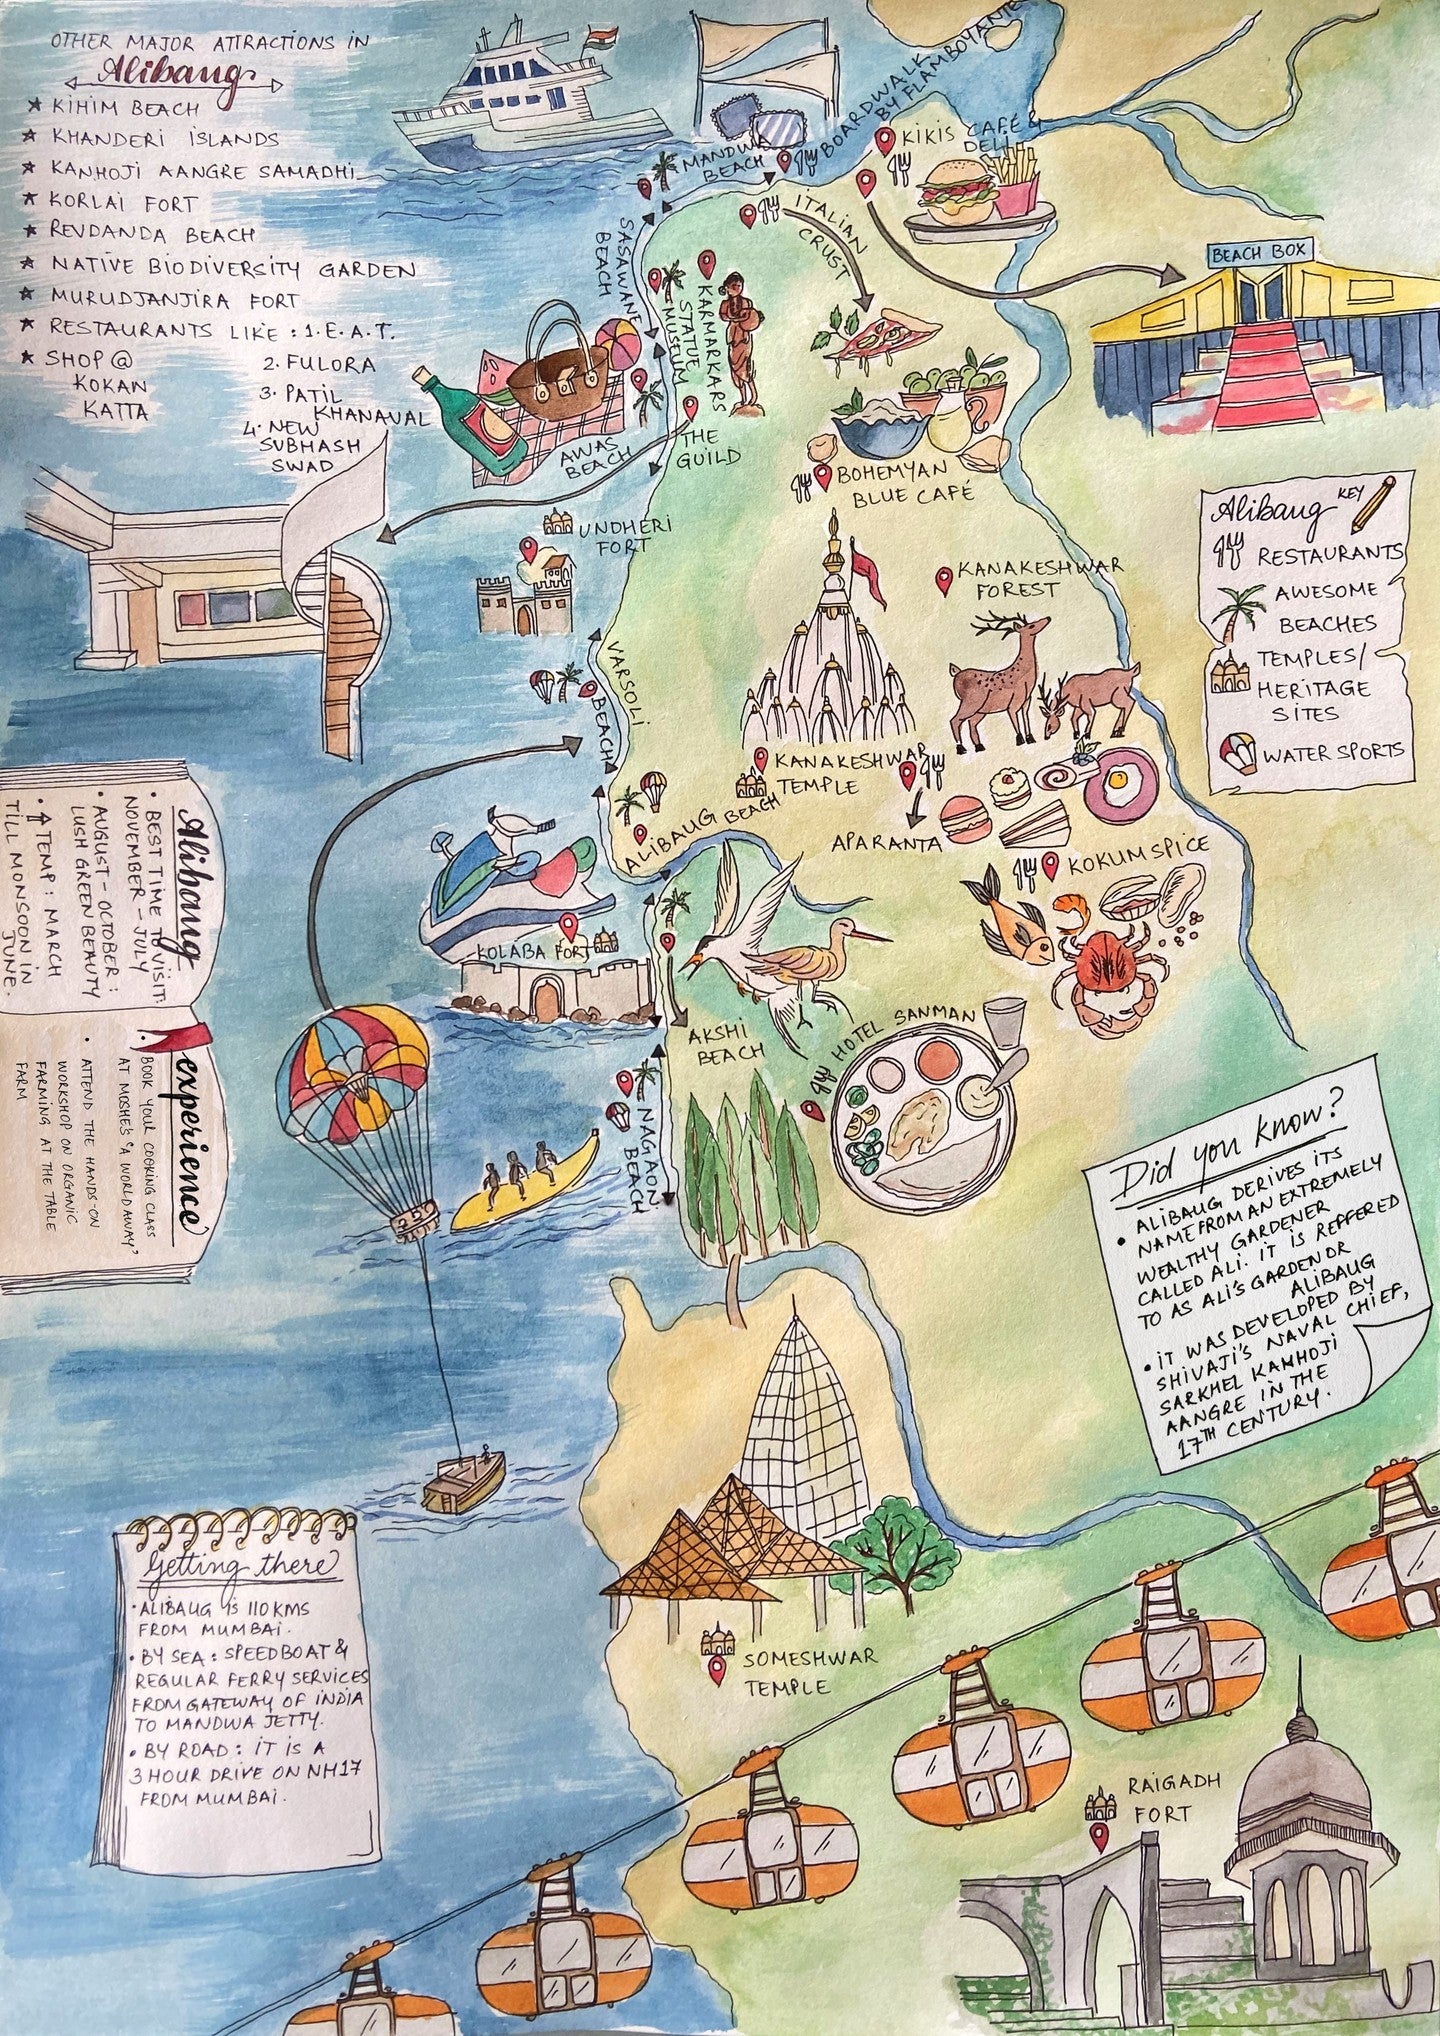 OTHER MAJOR ATTRACTIONS IN
Alibaug
★ KIHIM BEACH
★ KHANDERI ISLANDS
★ KANHOJI AANGRE SAMADHI
★ KORLAI FORT
★ REVDANDA BEACH
★ NATIVE BIODIVERSITY GARDEN
★ MURUDJANJIRA FORT
★ RESTAURANTS LIKE : 1. E.A.T.
2. FULORA
3. PATIL
KHANAVAL
4. NEW
SUBHASH
SWAD
★ SHOP @
KOKAN
KATTA
MANDWA
BEACH
BOARDWALK
BY FLAMBOYANTE
KIKIS CAFÉ &
DELI
ITALIAN
CRUST
BEACH BOX
SASAWANE
BEACH
KARMARKARS
STATUE
MUSEUM
AWAS
BEACH
THE
GUILD
BOHEMYAN
BLUE CAFÉ
UNDHERI
FORT
KANAKESHWAR
FOREST
Alibaug KEY
RESTAURANTS
AWESOME
BEACHES
TEMPLES/
HERITAGE
SITES
WATER SPORTS
VARSOLI
BEACH
KANAKESHWAR
TEMPLE
ALIBAUG BEACH
APARANTA
KOKUM SPICE
Alibaug
• BEST TIME TO VISIT:
NOVEMBER - JULY
• AUGUST - OCTOBER :
LUSH GREEN BEAUTY
• TEMP : MARCH
TILL MONSOON IN
JUNE.
experience
• BOOK YOUR COOKING CLASS
AT MOSHE'S "A WORLD AWAY"
• ATTEND THE HANDS-ON
WORKSHOP ON ORGANIC
FARMING AT THE TABLE
FARM
KOLABA FORT
AKSHI
BEACH
HOTEL SANMAN
NAGAON
BEACH
Did you know?
• ALIBAUG DERIVES ITS
NAME FROM AN EXTREMELY
WEALTHY GARDENER
CALLED ALI. IT IS REFFERED
TO AS ALI'S GARDEN OR
ALIBAUG
• IT WAS DEVELOPED BY
SHIVAJI'S NAVAL CHIEF,
SARKHEL KANHOJI
AANGRE IN THE
17TH CENTURY.
Getting there
• ALIBAUG IS 110 KMS
FROM MUMBAI.
• BY SEA : SPEEDBOAT &
REGULAR FERRY SERVICES
FROM GATEWAY OF INDIA
TO MANDWA JETTY.
• BY ROAD : IT IS A
3 HOUR DRIVE ON NH17
FROM MUMBAI.
SOMESHWAR
TEMPLE
RAIGADH
FORT